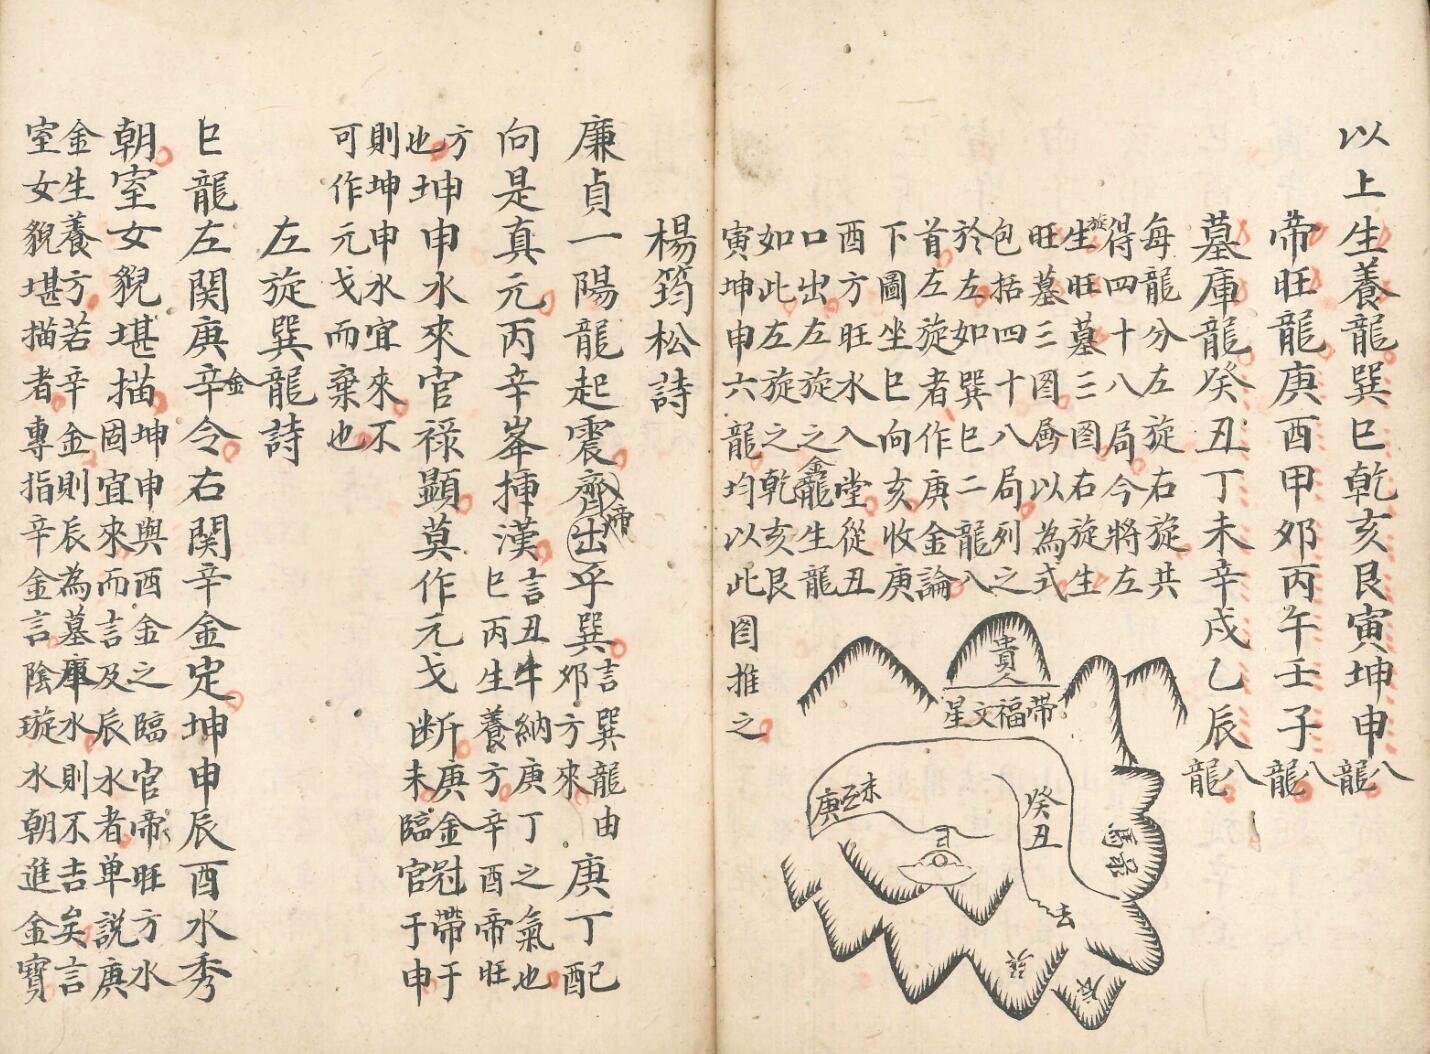 以上生養龍巽巳乾亥艮寅坤申八龍
帝旺龍庚酉甲卯丙午壬子八龍
墓庫龍癸丑丁未辛戌乙辰八龍
每龍分左旋右旋共
得四十八局今將左旋
生旺墓三图右旋生
旺墓三图畧以為式
包括四十八局列之
於左如巽巳二龍八
首左旋者作庚金論
下圖坐巳向亥收庚
酉方旺水入堂從丑
口出左旋之金龍生龍
如此左旋之乾亥艮
寅坤申六龍均以此
图推之
貴人
帶福文星
庚
未
癸丑
馬
去
辰
楊筠松詩
廉貞一陽龍起震齊出帝乎巽言巽龍由卯方來庚丁配
向是真元丙辛峯揷漢言丑牛納庚丁之氣也巳丙生養方辛酉帝旺
方也坤申水來官祿顯莫作元戈断庚金冠帶于未臨官于申
則坤申水宜來不
可作元戈而棄也
左旋巽龍詩
巳龍左関庚辛金令右関辛金定坤申辰酉水秀
朝室女貌堪描坤申與酉金之臨官帝旺方水固宜來而言及辰水者单説庚
金生養方若辛金則辰為墓庫水則不吉矣言
室女貌堪描者專指辛金言陰璇水朝進金寳